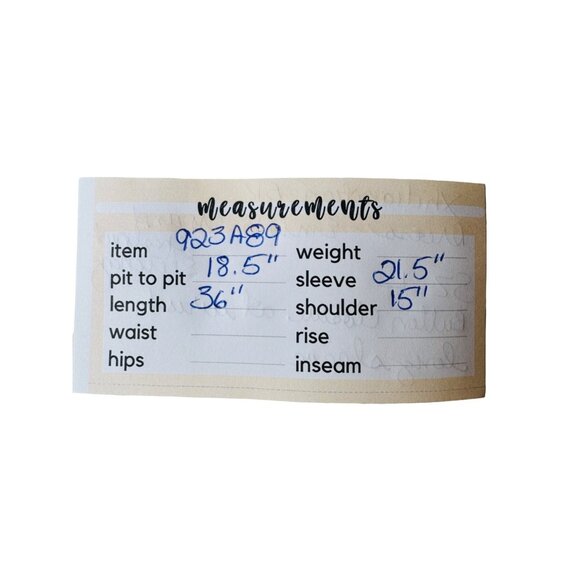 measurements
item 923A89
pit to pit 18.5"
length 36"
waist
hips
weight
sleeve 21.5"
shoulder 15"
rise
inseam